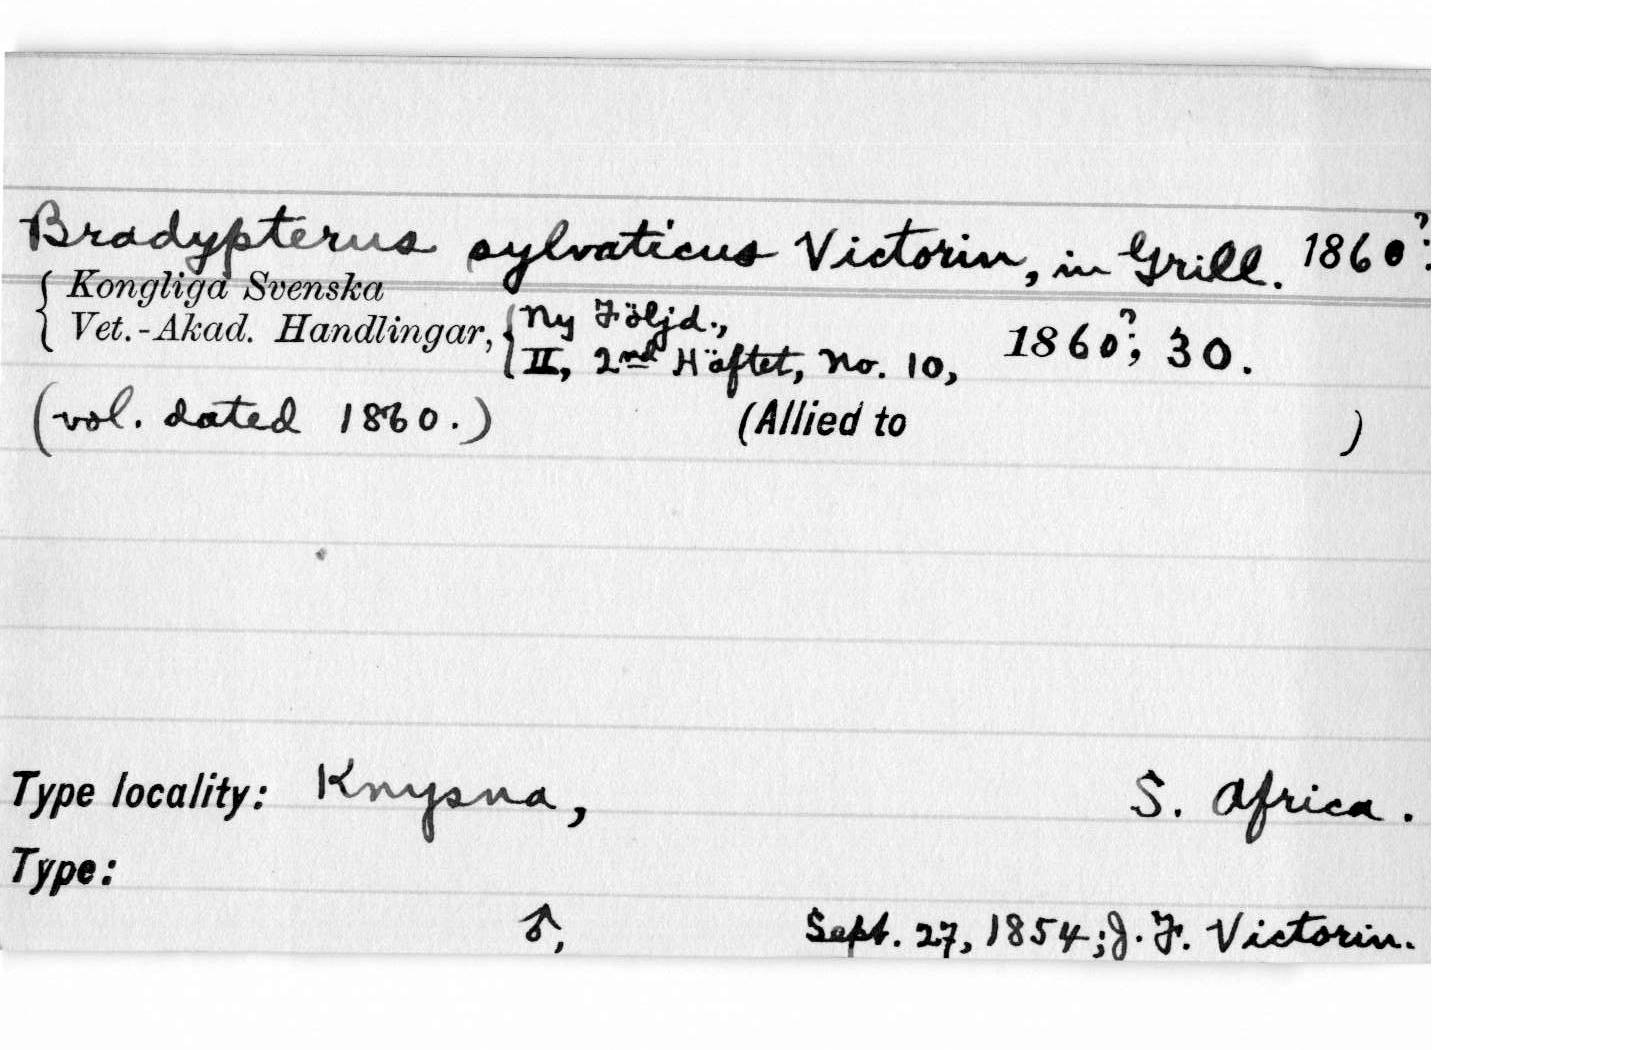 Bradypterus sylvaticus Victorin, in Grill. 1860?:
{ Kongliga Svenska
Vet.-Akad. Handlingar, { Ny Följd.,
II, 2nd Häftet, No. 10, 1860?; 30.
(vol. dated 1860.) (Allied to )
Type locality: Knysna, S. Africa.
Type:
♂, Sept. 27, 1854; J. F. Victorin.